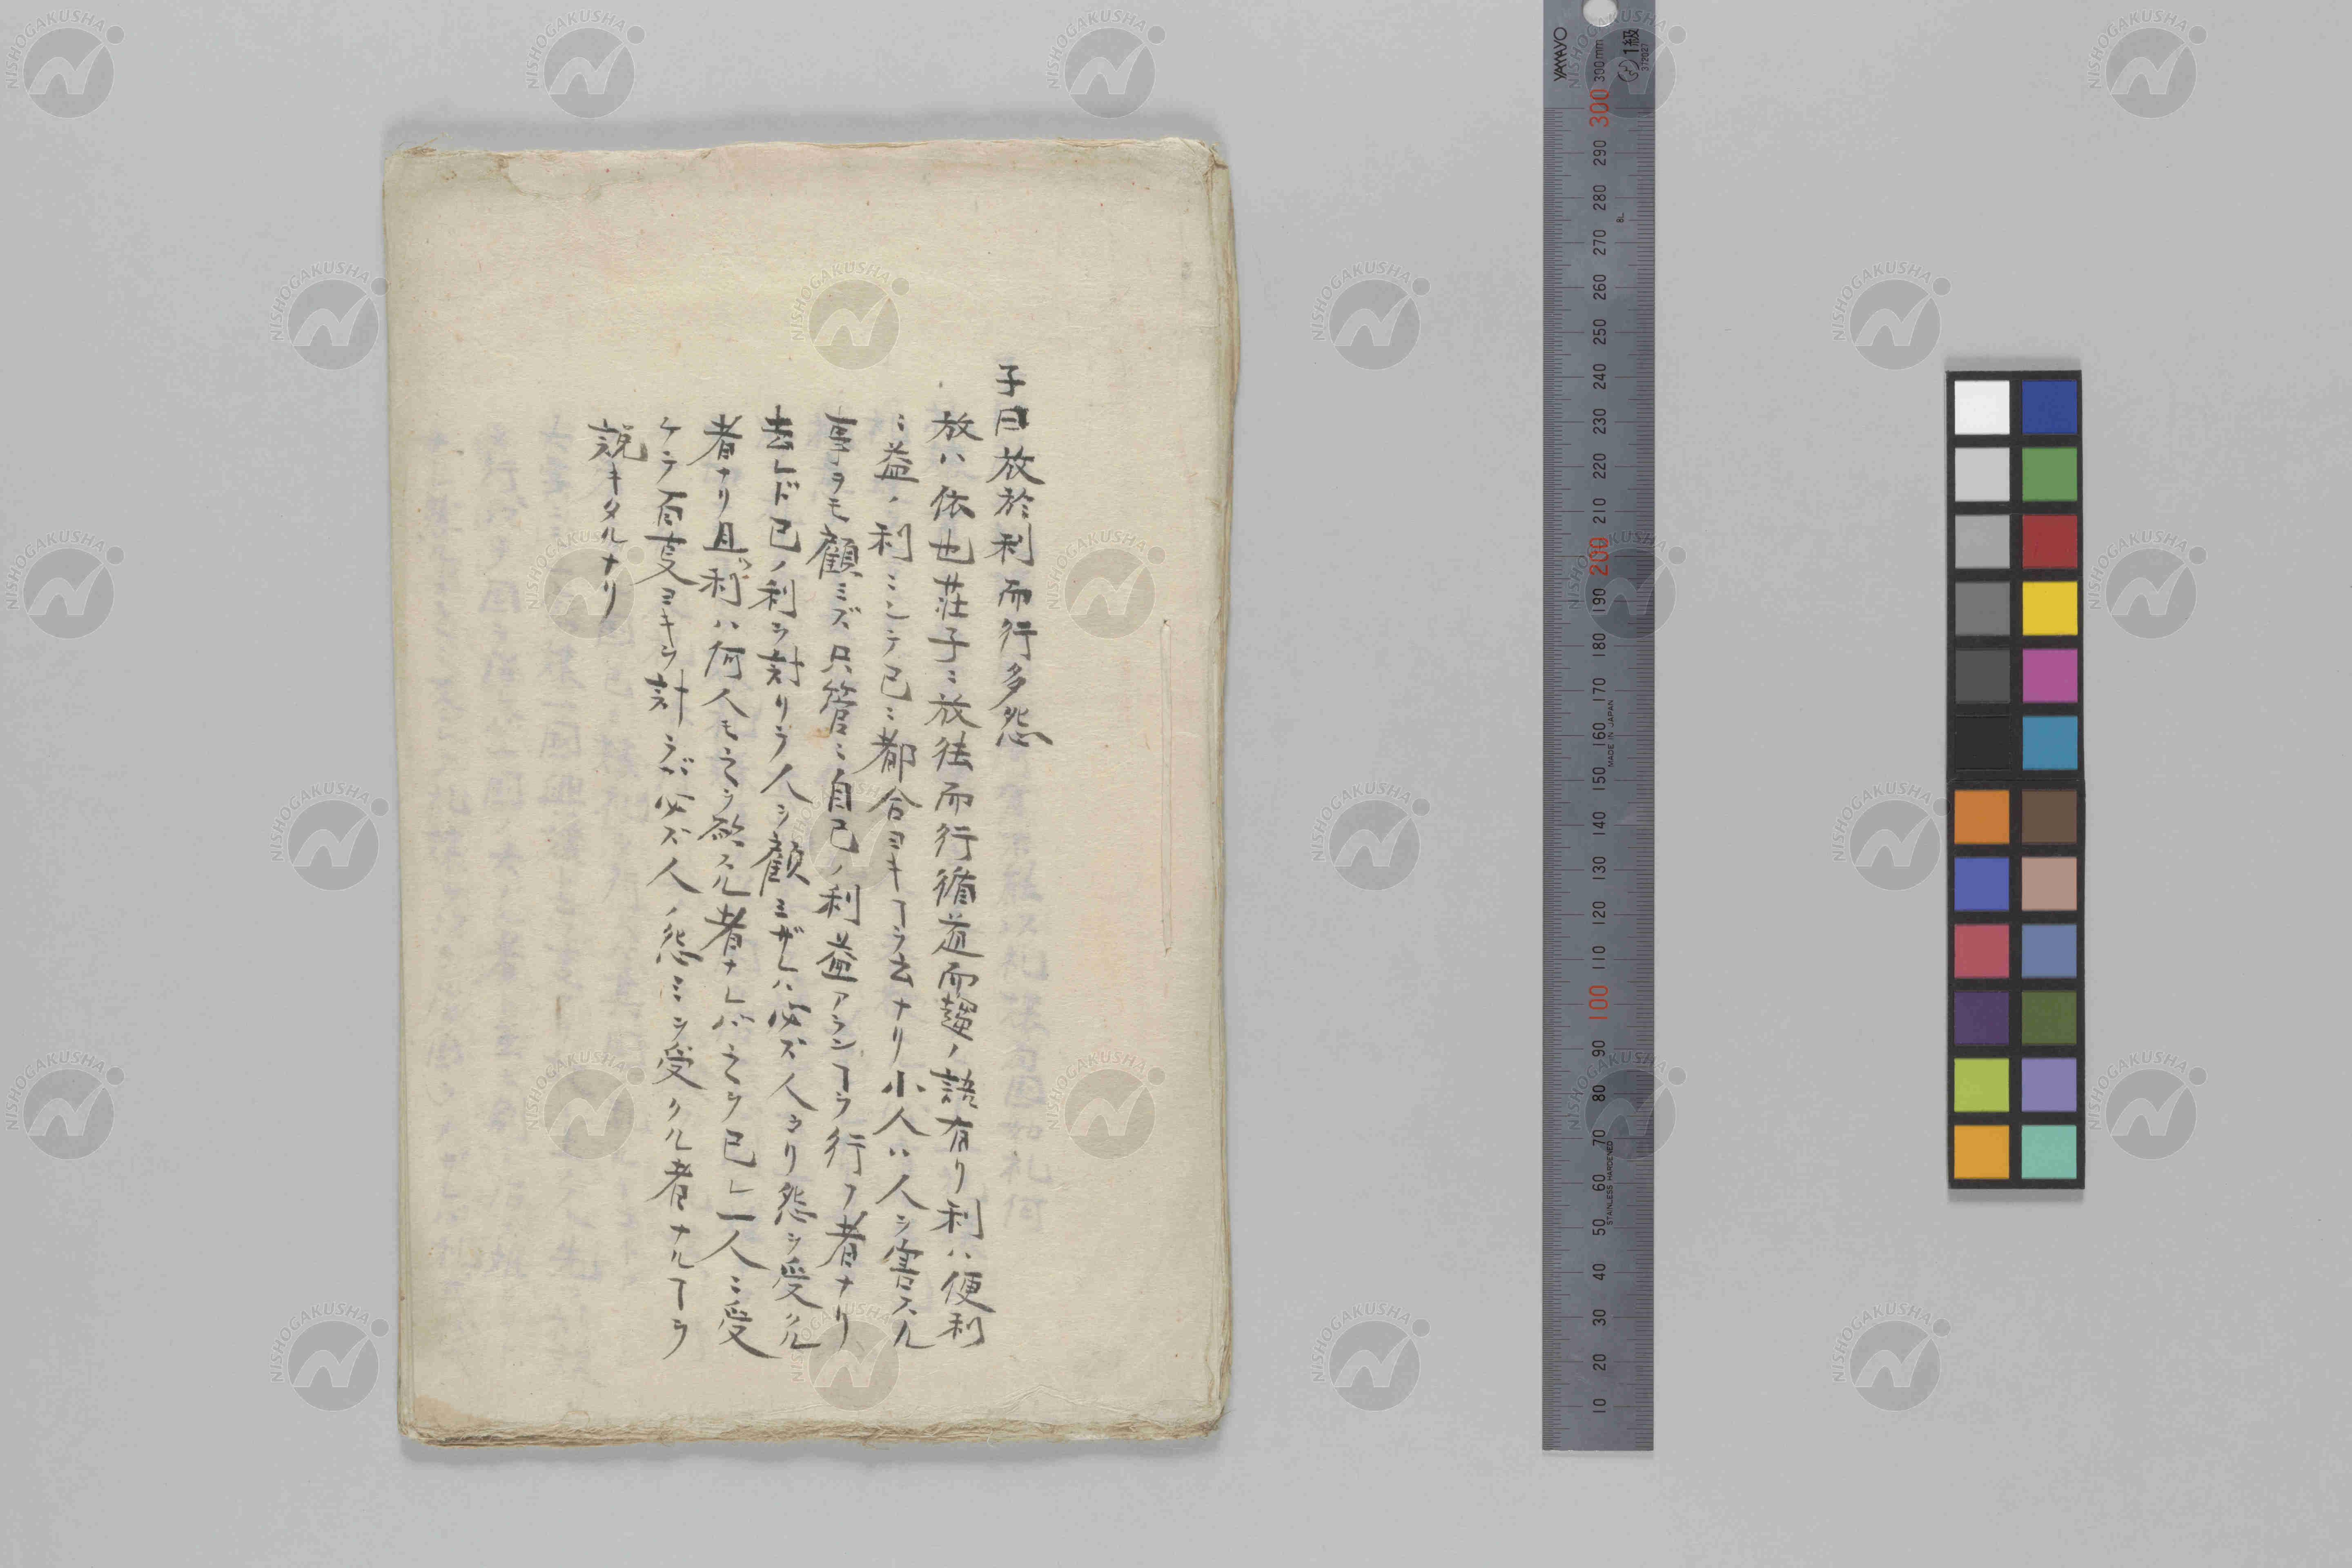 子曰放於利而行多怨
放ハ依也荘子ニ放徳而行循道而趨ノ語有リ利ハ便利
ニ益ノ利ニシテ己ニ都合ヨキヿヲ云ナリ小人ハ人ヲ害スル
事ヲモ顧ミズ只管ニ自己ノ利益アランヿヲ行フ者ナリ
去レド己ノ利ヲ計リテ人ヲ顧ミザレハ必ズ人ヨリ怨ヲ受クル
者ナリ且ツ利ハ何人モ之ヲ欲スル者ナレバ之ヲ己レ一人ニ受
ケテ百事ヨキヲ計ラバ必ズ人ノ怨ミヲ受クル者ナルヿヲ
説キタルナリ
YAMAYO
1級
312027
300mm
300
290
280
270
260
250
240
230
220
210
200
190
180
170
160
150
140
130
120
110
100
90
80
70
60
50
40
30
20
10
MADE IN JAPAN
STAINLESS HARDENED
NISHOGAKUSHA